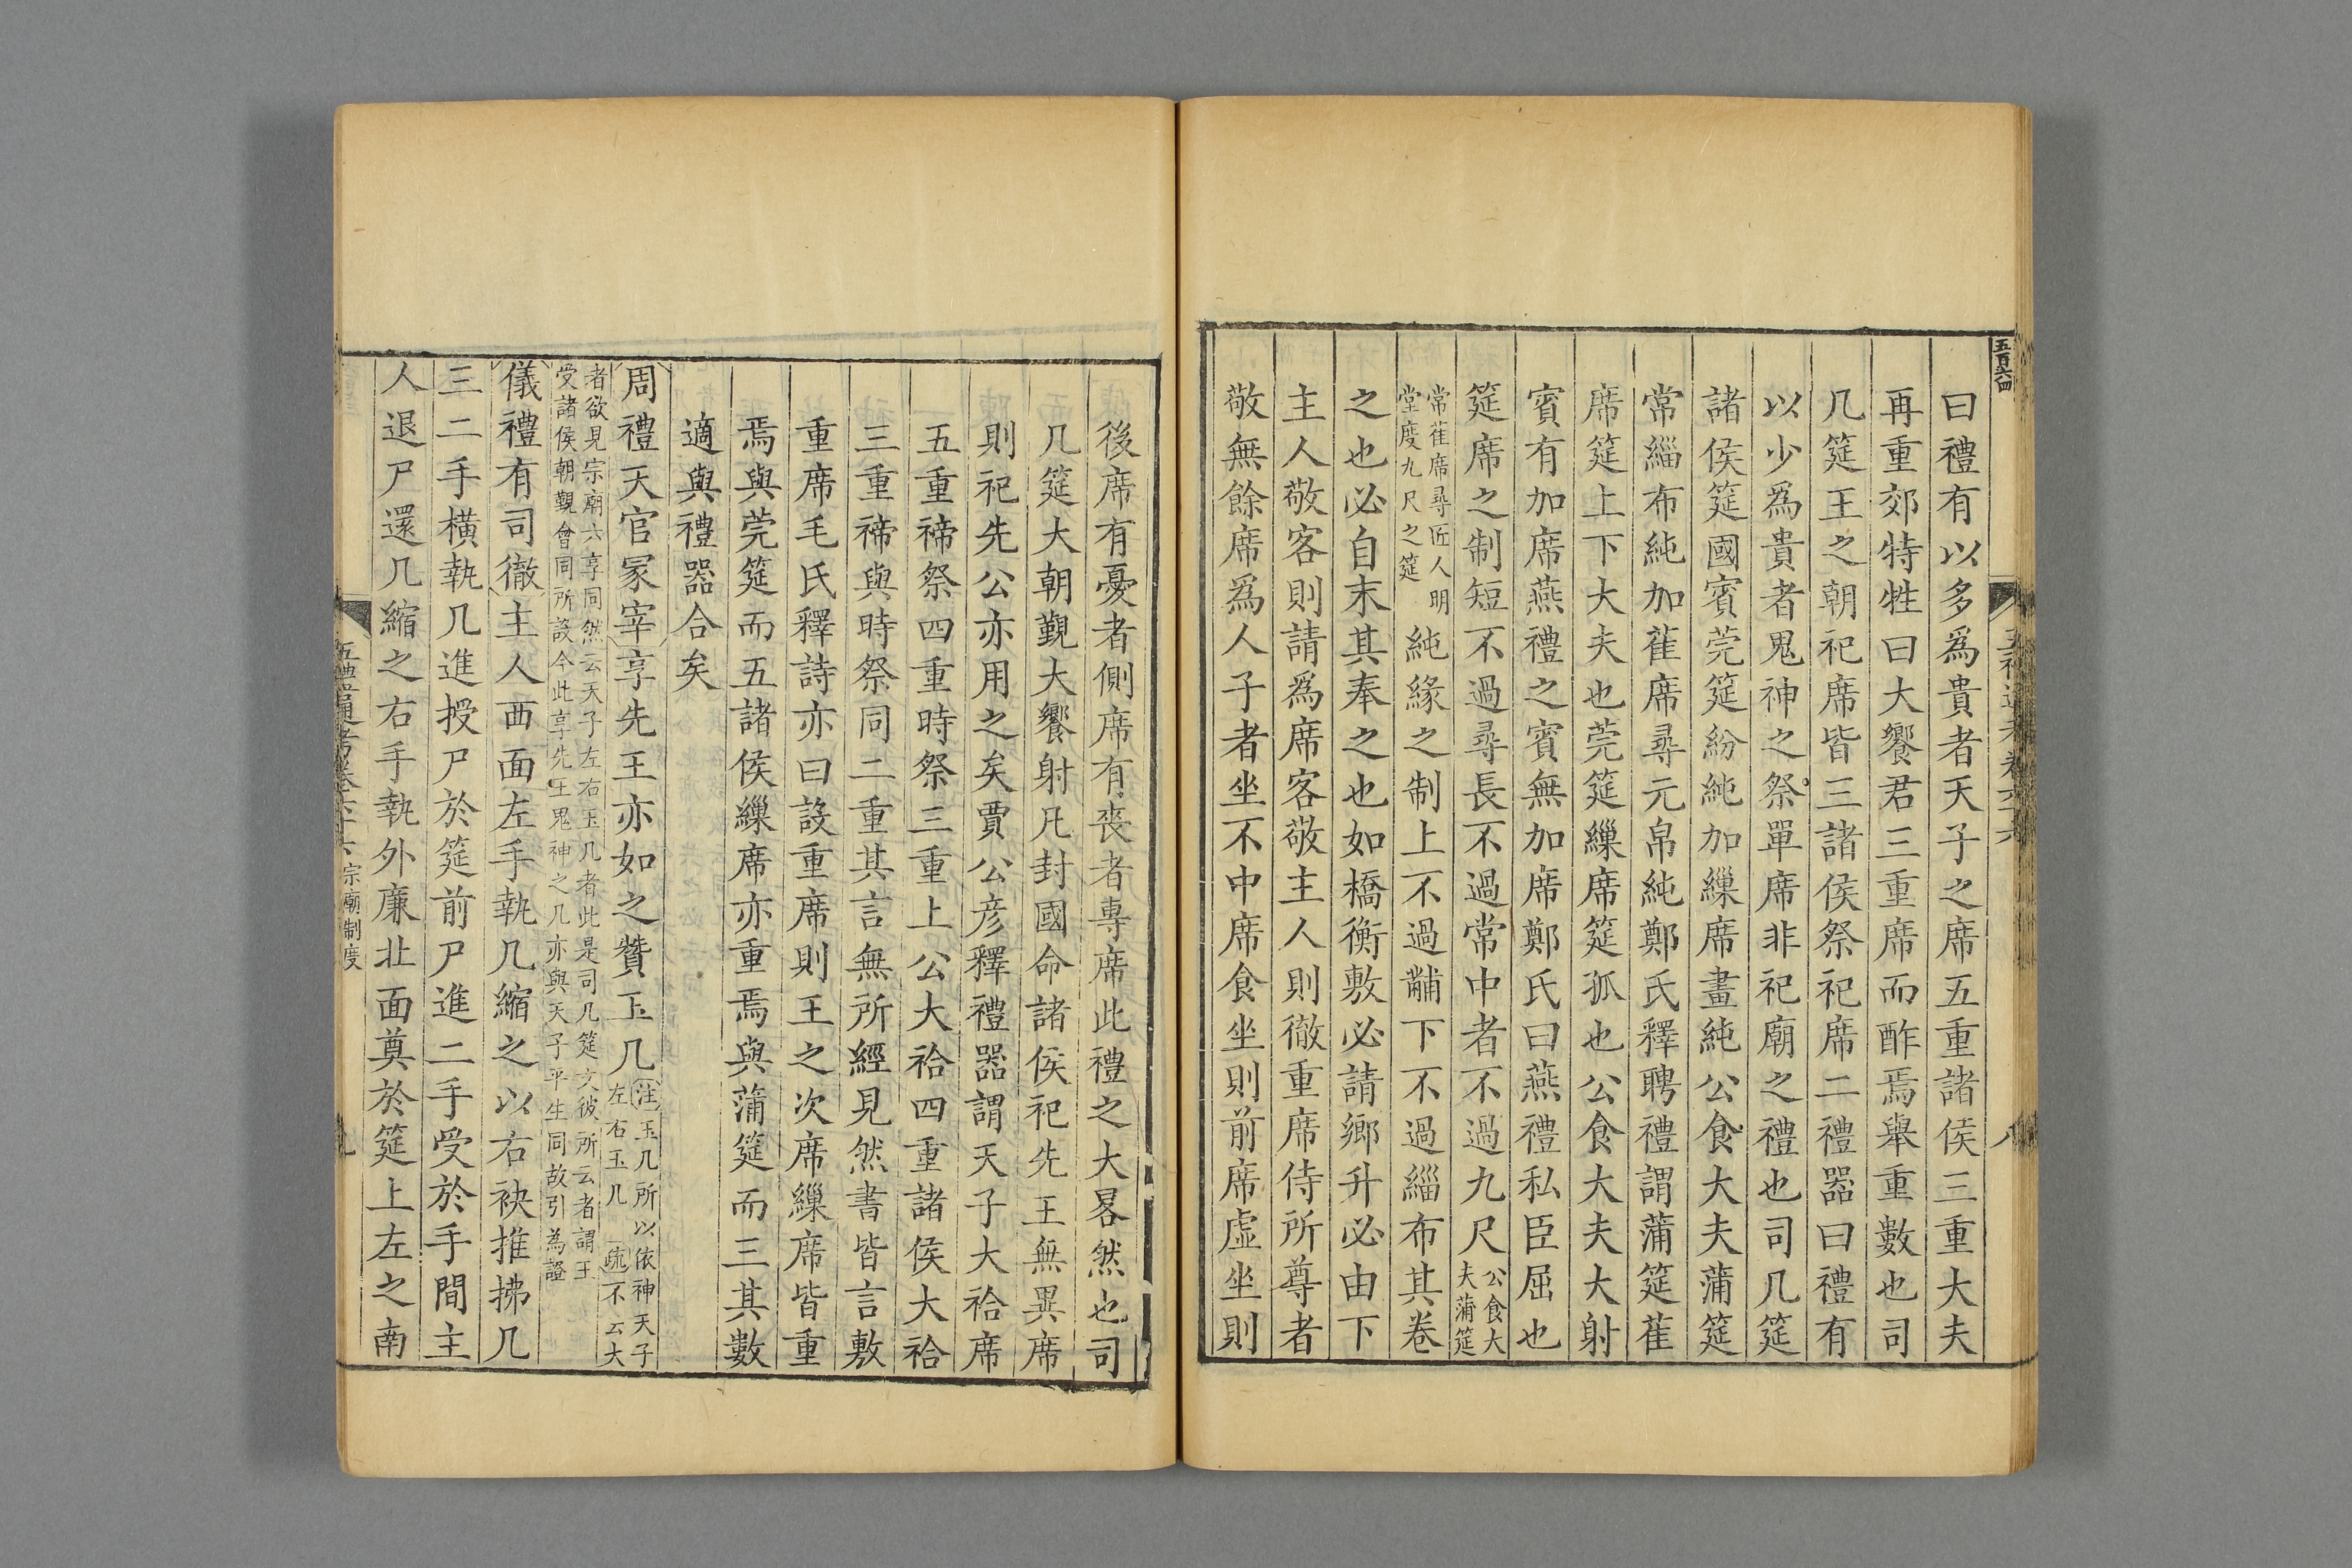 五百六四
曰禮有以多爲貴者天子之席五重諸侯三重大夫
再重郊特牲曰大饗君三重席而酢焉舉重數也司
几筵王之朝祀席皆三諸侯祭祀席二禮器曰禮有
以少爲貴者鬼神之祭單席非祀廟之禮也司几筵
諸侯筵國賓莞筵紛純加繅席畫純公食大夫蒲筵
常緇布純加萑席尋元帛純鄭氏釋聘禮謂蒲筵萑
席筵上下大夫也莞筵繅席筵孤也公食大夫大射
賓有加席燕禮之賓無加席鄭氏曰燕禮私臣屈也
筵席之制短不過尋長不過常中者不過九尺公食大夫蒲筵
常萑席尋匠人明堂度九尺之筵純緣之制上不過黼下不過緇布其卷
之也必自末其奉之也如橋衡敷必請鄉升必由下
主人敬客則請爲席客敬主人則徹重席侍所尊者
敬無餘席爲人子者坐不中席食坐則前席虛坐則
後席有憂者側席有喪者專席此禮之大畧然也司
几筵大朝覲大饗射凡封國命諸侯祀先王無異席
則祀先公亦用之矣賈公彦釋禮器謂天子大祫席
五重禘祭四重時祭三重上公大祫四重諸侯大祫
三重禘與時祭同二重其言無所經見然書皆言敷
重席毛氏釋詩亦曰設重席則王之次席繅席皆重
焉與莞筵而五諸侯繅席亦重焉與蒲筵而三其數
適與禮器合矣
周禮天官冢宰享先王亦如之贊玉几注玉几所以依神天子左右玉几疏不云大
者欲見宗廟六享同然云天子左右玉几者此是司几筵文彼所云者謂王
受諸侯朝覲會同所設今此享先王鬼神之几亦與天子平生同故引為證
儀禮有司徹主人西面左手執几縮之以右袂推拂几
三二手橫執几進授尸於筵前尸進二手受於手間主
人退尸還几縮之右手執外廉北面奠於筵上左之南
五禮通考卷六十六 宗廟制度 九